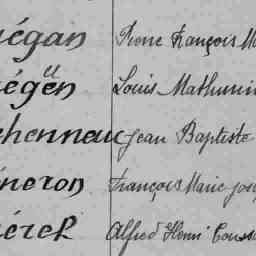 iégan Pierre François M
iégën Louis Mathurin
henneuc Jean Baptiste
neron François Marie Jos
iérch Alfred Henri Touss